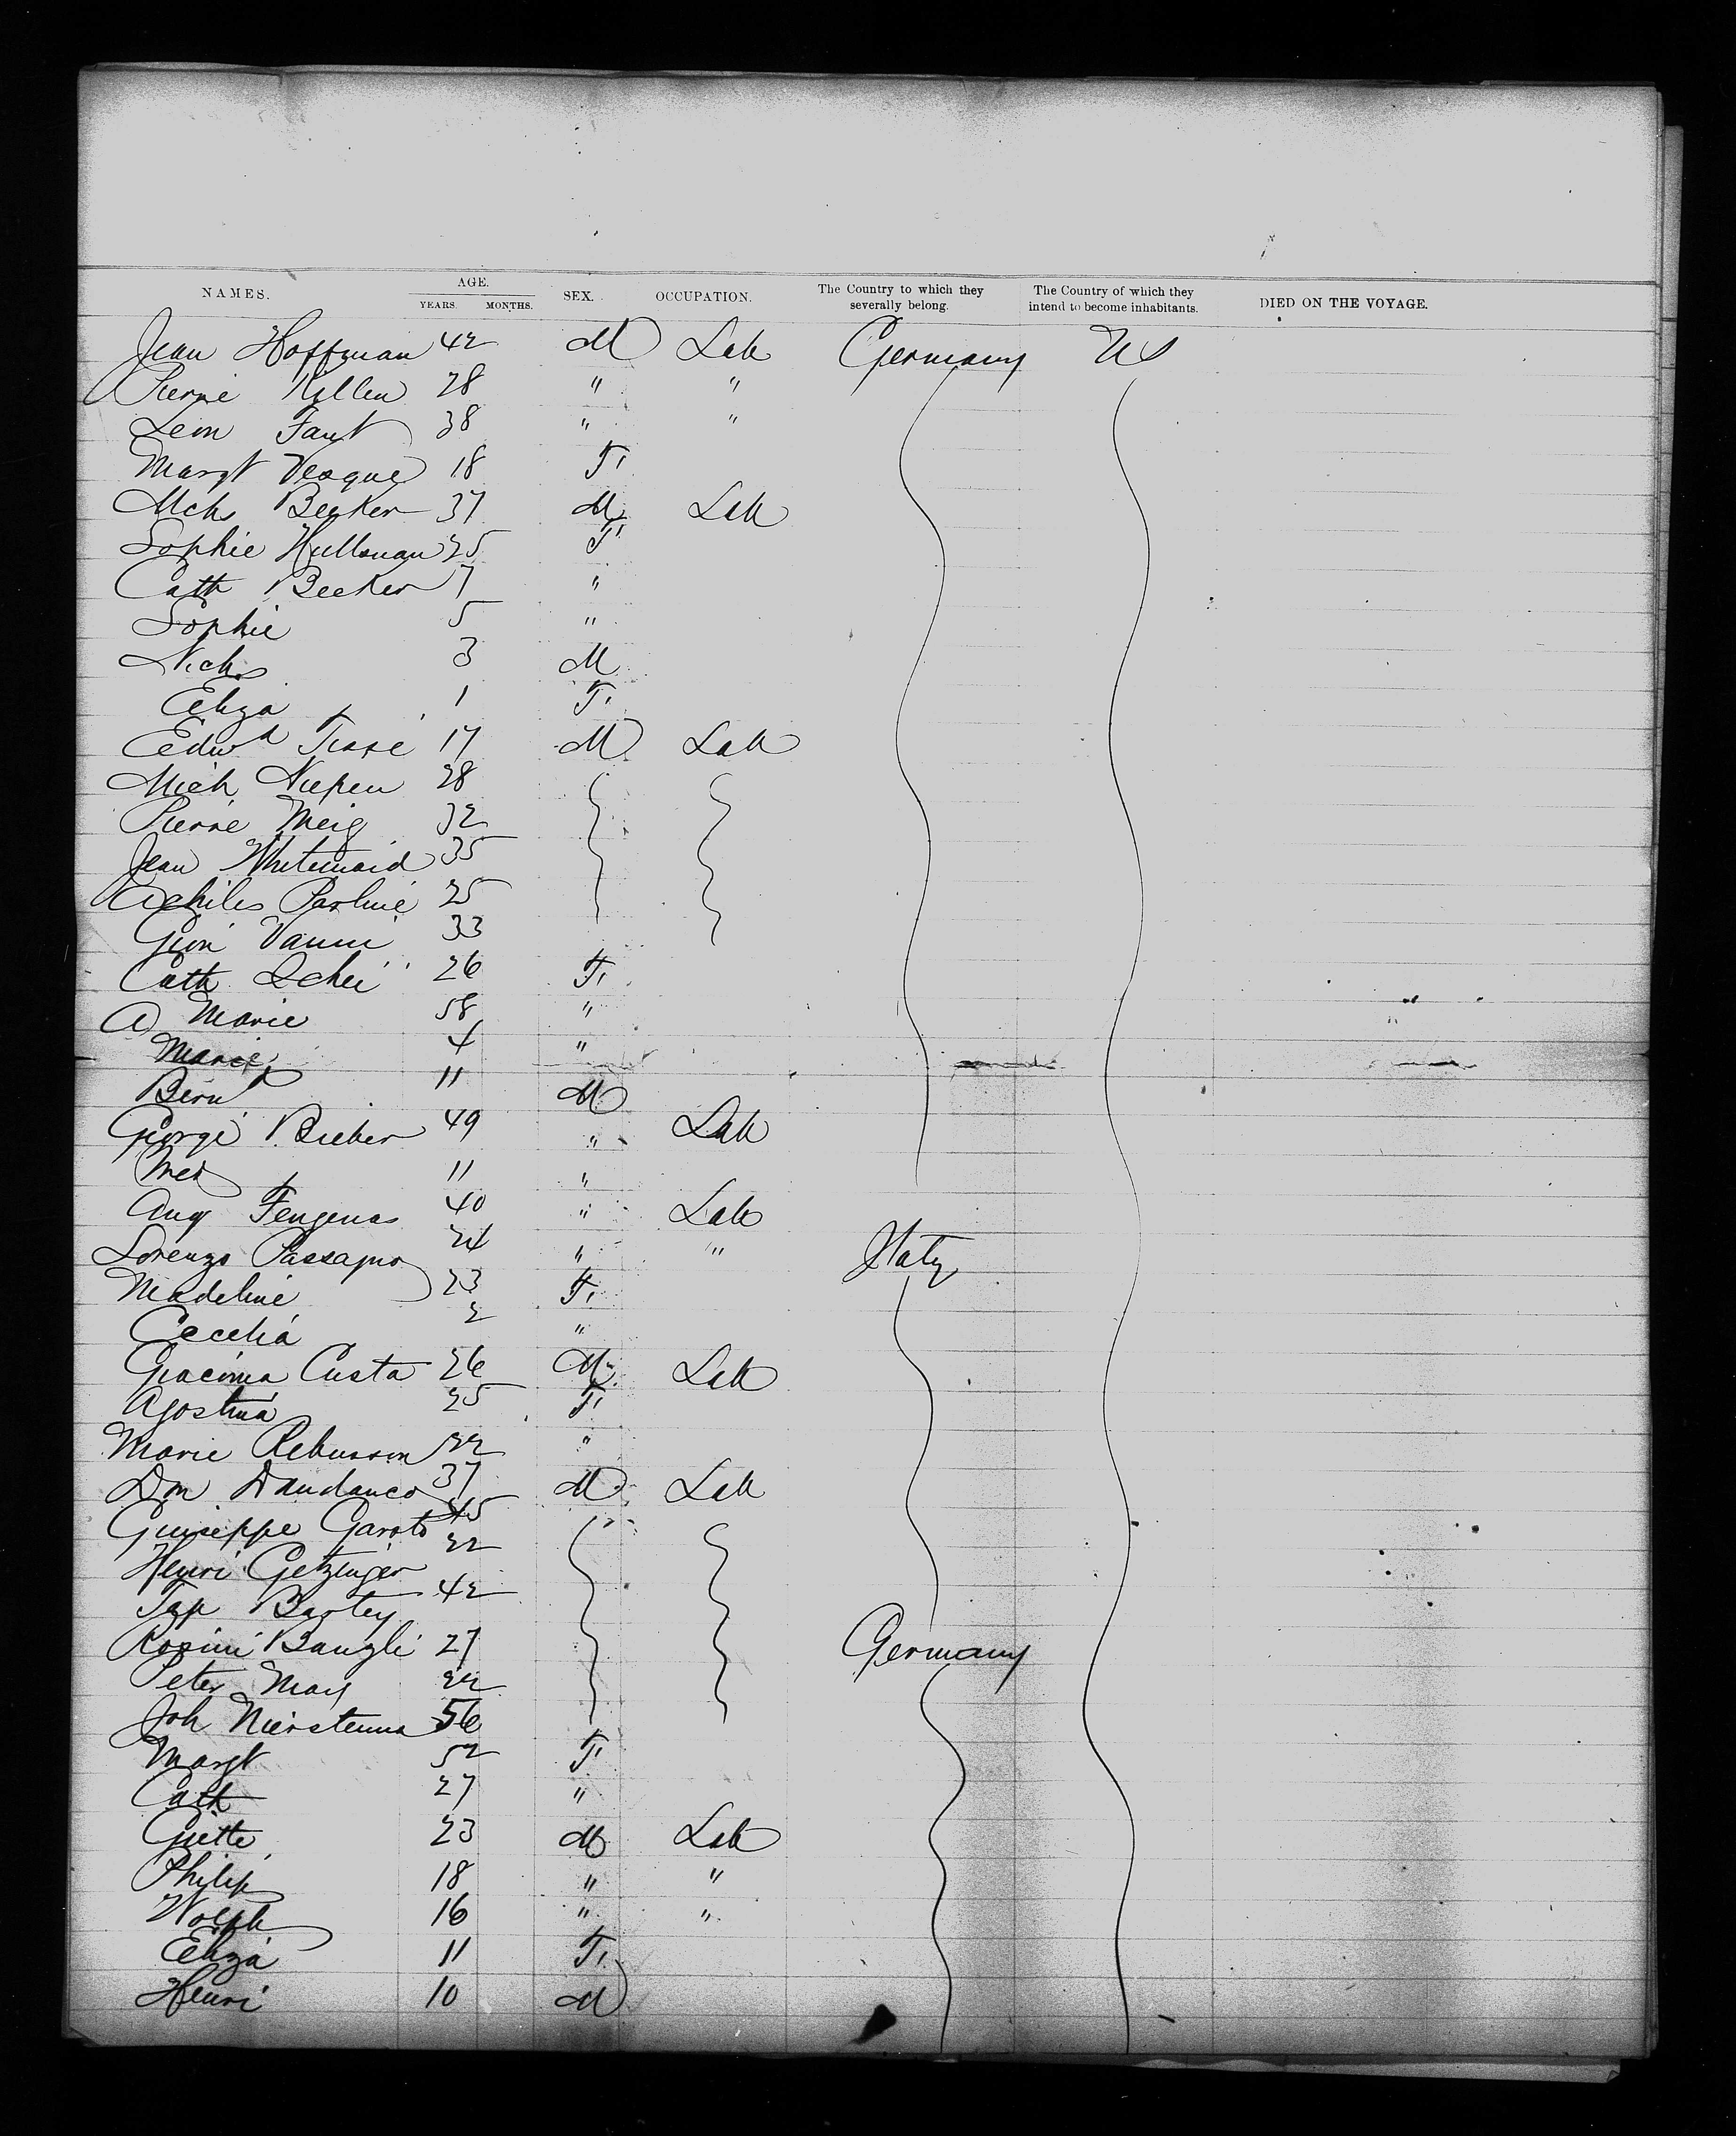 NAMES. AGE. YEARS. MONTHS. SEX. OCCUPATION. The Country to which they severally belong. The Country of which they intend to become inhabitants. DIED ON THE VOYAGE.
Jean Hoffman 42 M Lab Germany US
Pierre Killen 28 " "
Leon Faut 38 " "
Margt Vesque 18 F.
Mchs Becker 37 M Lab
Sophie 25 F.
Cath Becker 7 "
Sophie 5 "
Nichs 3 M
Eliza 1 F.
Edwd Tisse 17 M Lab
Mich Niepen 28
Pierre Meig 32
Jean 35
Achiles 25
Giov Vanni 33
Cath Schei 26 F.
A Marie 58 "
Marie 4 "
Bern 11 M
George Bieber 49 " Lab
11 "
Aug Fengenas 40 " Lab
Lorenzo Passagno 24 " " Italy
Madeline 23 F.
Cecelia 2 "
Giacoma Custa 26 M Lab
Agostina 25 F.
Marie 22 "
Dom Dandanco 37 M Lab
Guiseppe 45
Henri Getzinger 22
Bastey 42
27 Germany
Peter May 22
Joh 56
Margt 52 F.
Cath 27 "
23 M Lab
Philip 18 " "
16 " "
Eliza 11 F.
Henri 10 M